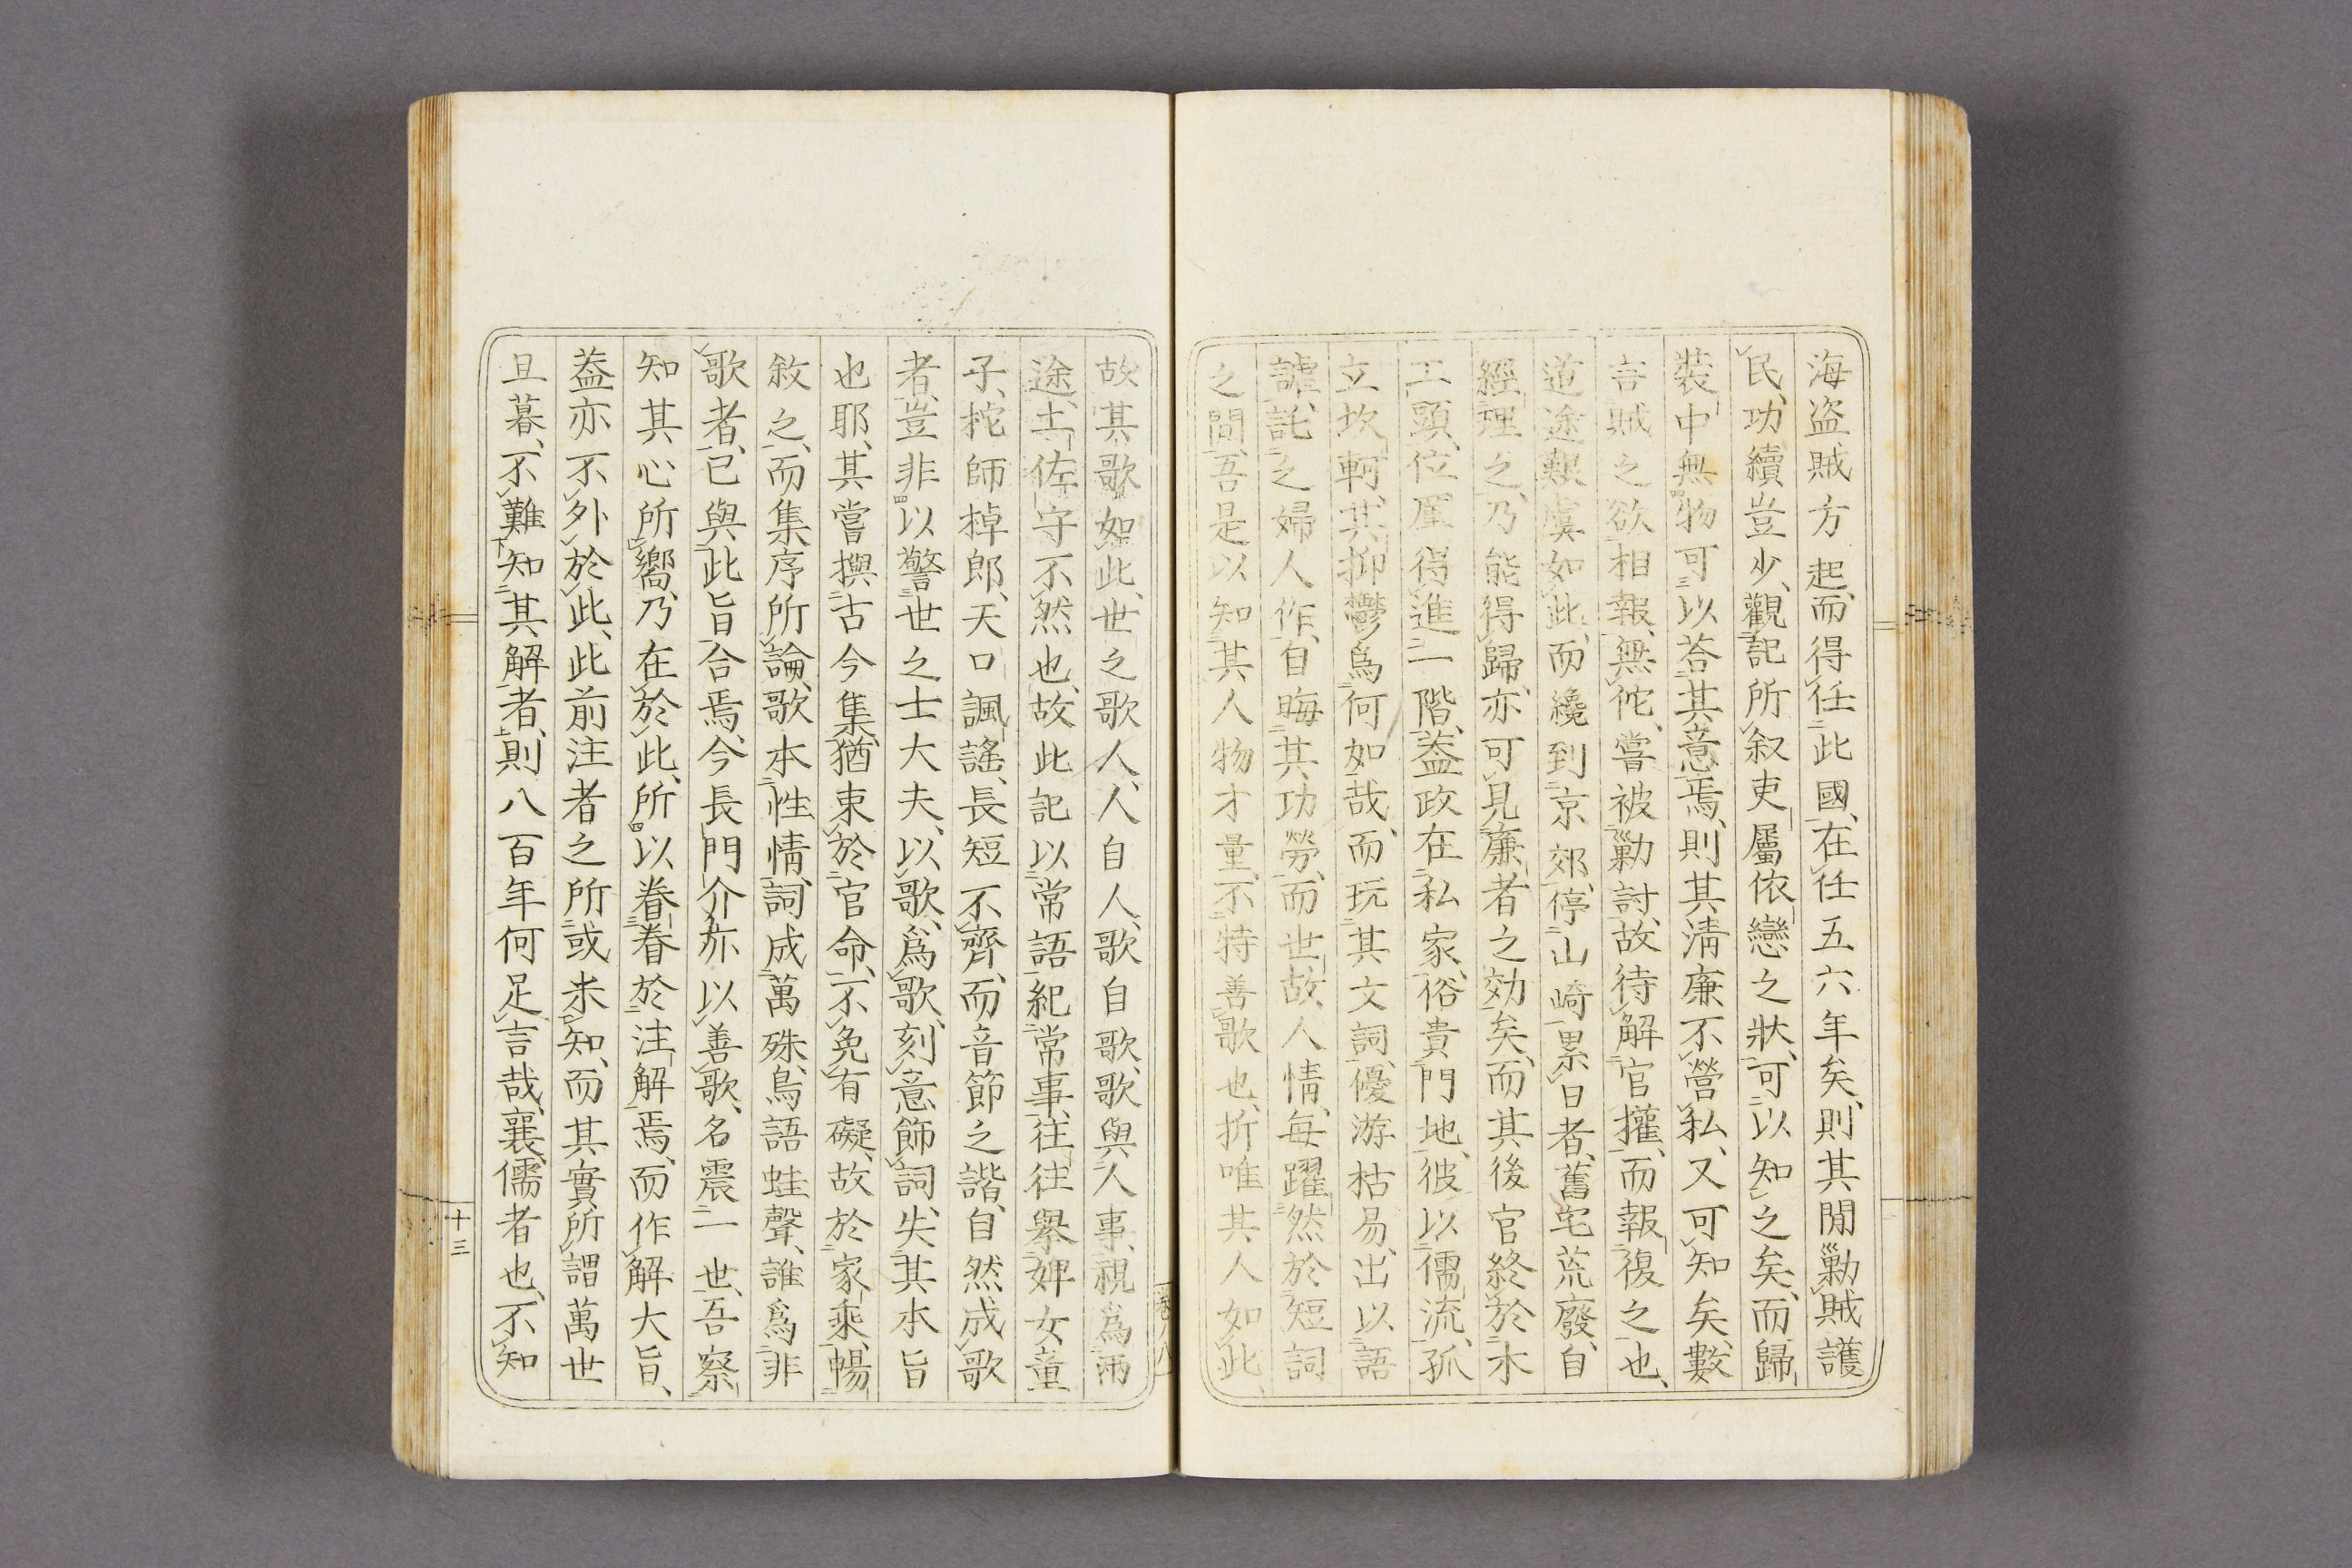 海盗賊方起、而得任此國、在任五六年矣、則其間勦賊護
民、功績豈少、觀記所叙吏屬依戀之狀、可以知之矣、而歸
裝中無物可以荅其意焉、則其淸廉不營私、又可知矣、數
言賊之欲相報、無佗、嘗被勦討、故待解官擢、而報復之也、
道途艱虞如此、而纔到京郊、停山崎累日者、舊宅荒廢、自
經理之、乃能得歸、亦可見廉者之効矣、而其後官終於木
工頭、位厪得進一階、葢政在私家、俗貴門地、彼以儒流、孤
立坎軻、其抑鬱爲何如哉、而玩其文詞、優游枯易、出以語
謔、託之婦人作、自晦其功勞、而世故、人情、每躍然於短詞
之間、吾是以知其人物才量、不特善歌也、折唯其人如此、
故其歌如此、世之歌人、人自人、歌自歌、歌與人事、視爲兩
途、土佐守不然也、故此記以常語紀常事、往往舉婢女童
子、柁師棹郎、天口諷謠、長短不齊、而音節之諧、自然成歌
者、豈非以警世之士大夫、以歌爲歌、刻意飾詞、失其本旨
也耶、其嘗撰古今集、猶束於官命、不免有礙、故於家乘、暢
敘之、而集序所論、歌本性情、詞成萬殊、鳥語蛙聲、誰爲非
歌者、已與此旨合焉、今長門介亦以善歌、名震一世、吾察
知其心所嚮、乃在於此、所以眷眷於注解焉、而作解大旨、
葢亦不外於此、此前注者之所或未知、而其實所謂萬世
旦暮、不難知其解者、則八百年何足言哉、襄儒者也、不知
卷八
十三